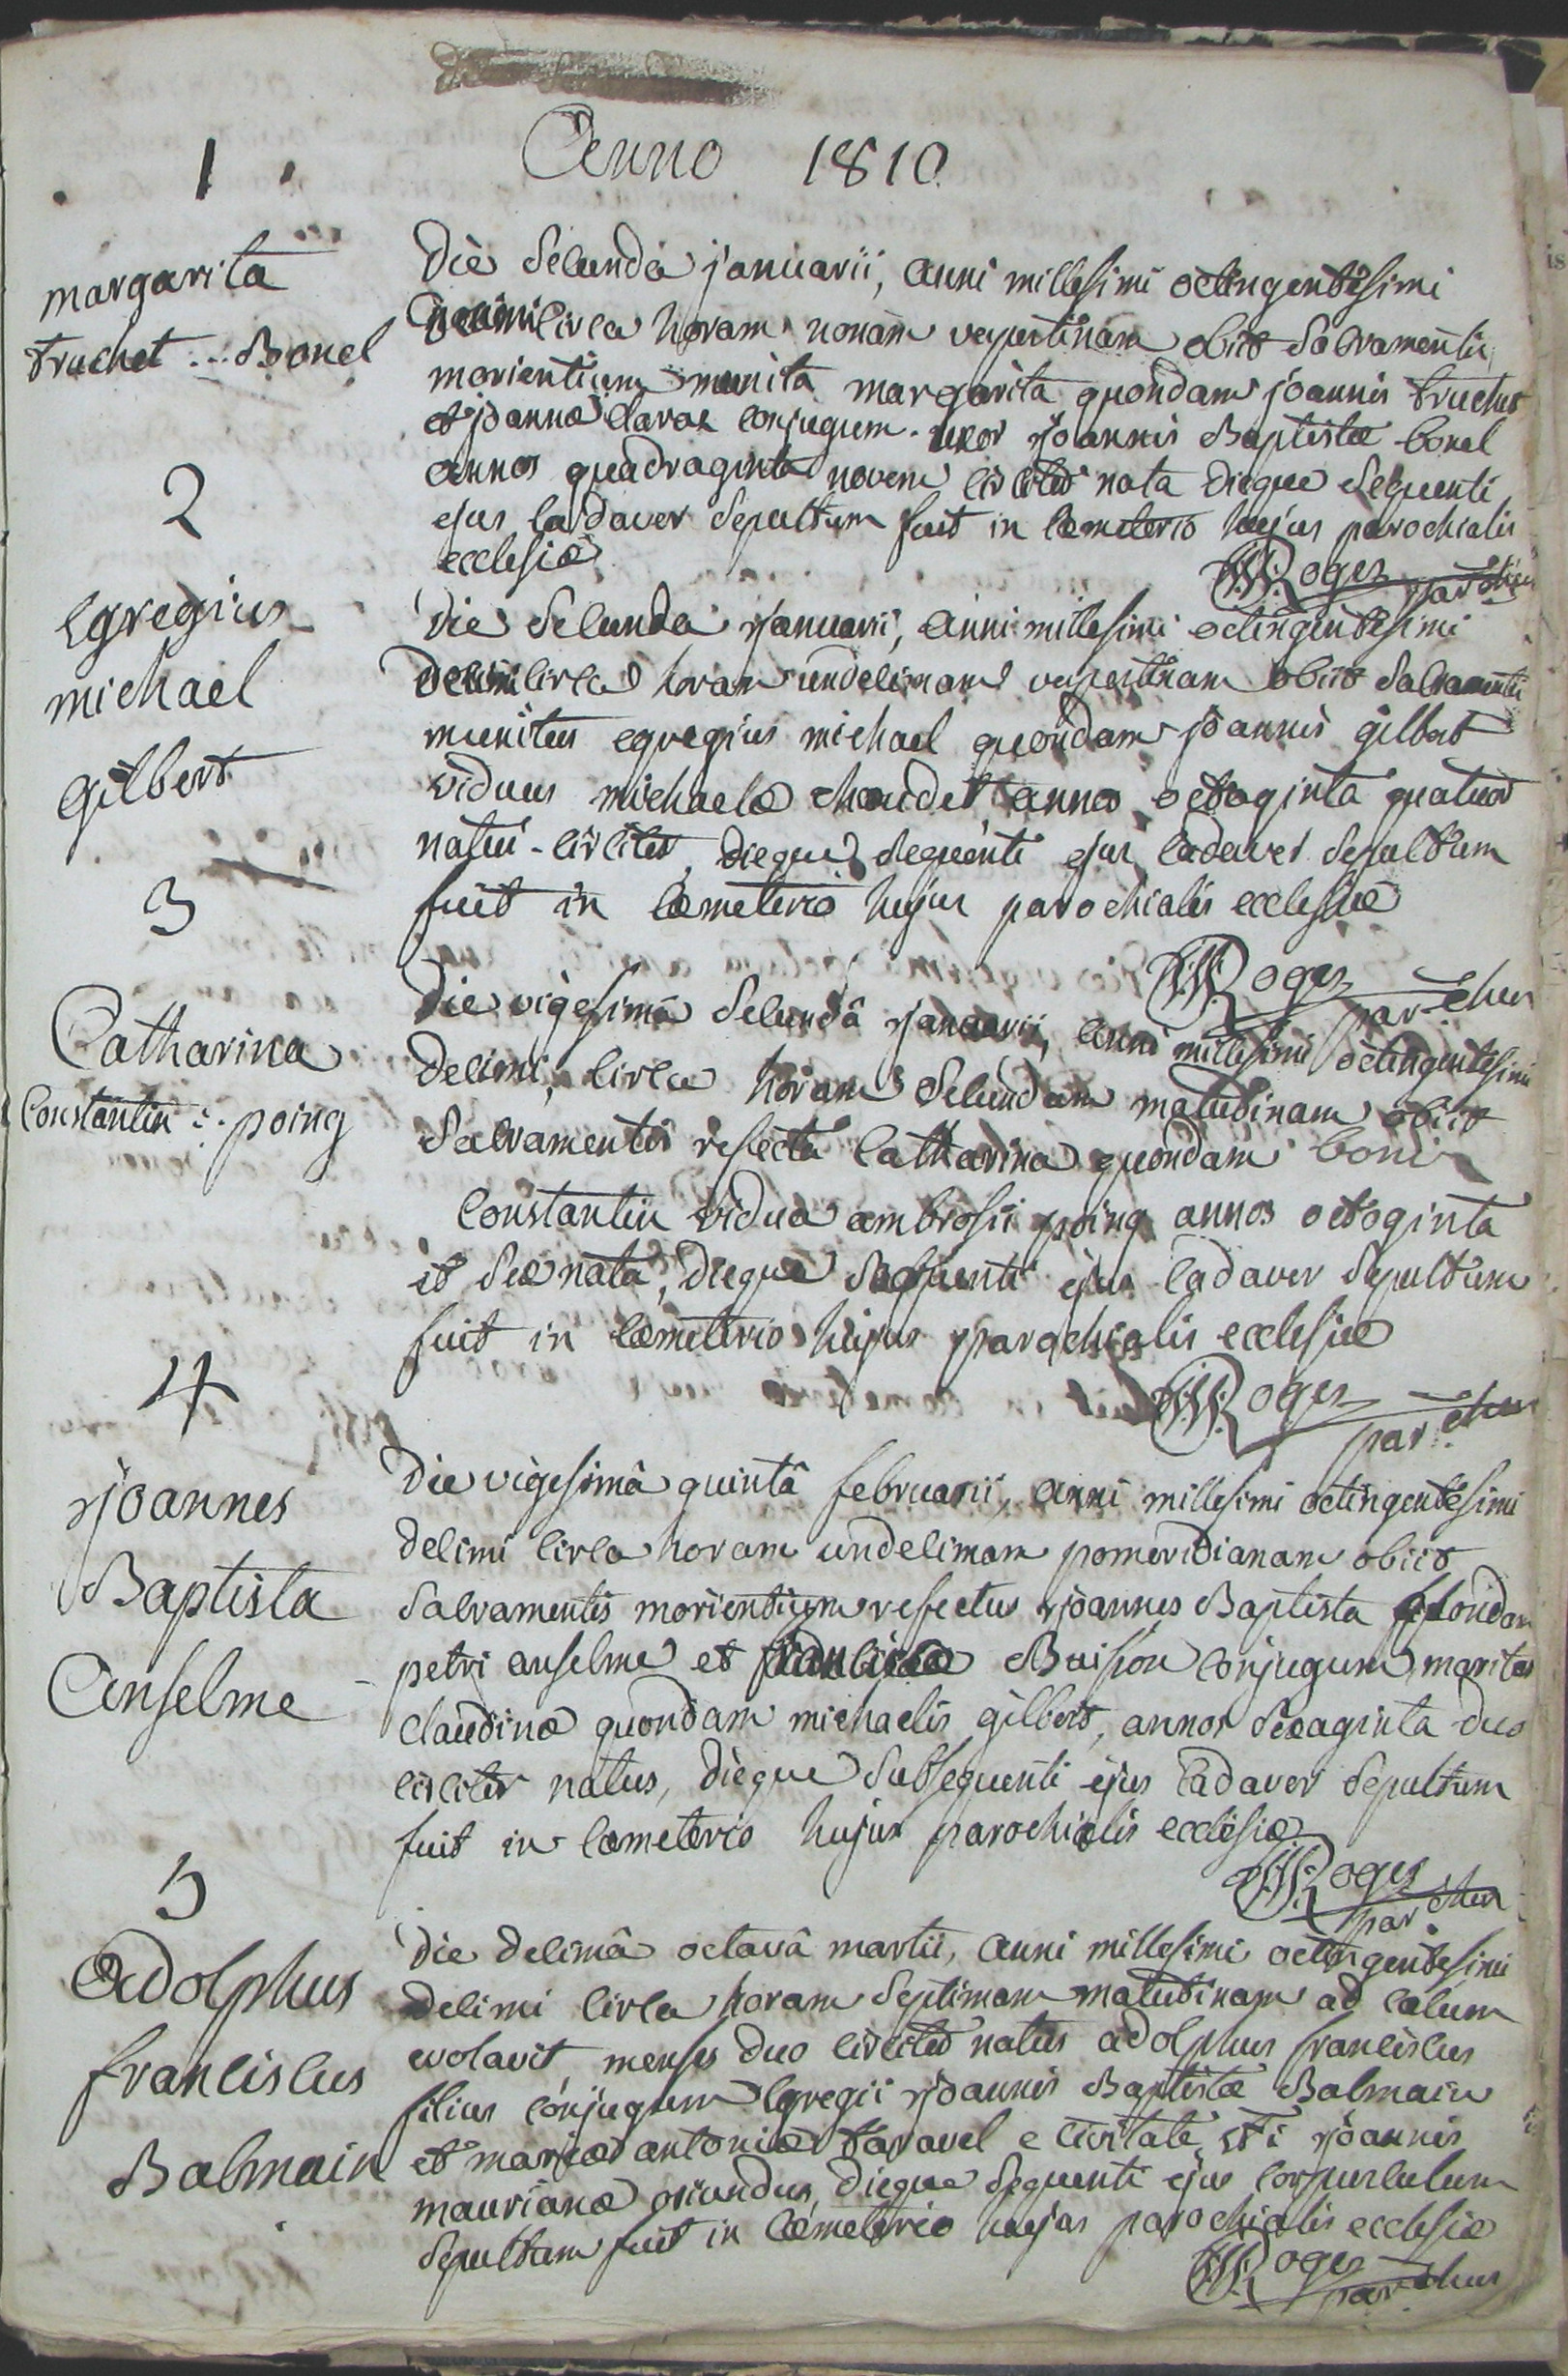 Anno 1810
1
margarita
truchet ... Bonel
Die Secunda januarii, anni millesimi octingentesimi
decimi circa horam nonam vespertinam obiit Sacramentis
morientium munita margarita quondam joannis truchet
et joannæ claraz conjugum. uxor joannis Baptistæ bonel
annos quadraginta novem circiter nata dieque sequenti
ejus cadaver Sepultum fuit in cæmeterio hujus parochialis
ecclesiæ
Roges parochus
2
Egregius
michael
gilbert
Die Secunda januarii, anni millesimi octingentesimi
decimi circa horam undecimam vespertinam obiit Sacramentis
munitus egregius michael quondam joannis gilbert
viduus michaelæ chaudet annos octoginta quatuor
natus circiter, dieque Sequenti ejus cadaver Sepultum
fuit in cæmeterio hujus parochialis ecclesiæ
Roges parochus
3
Catharina
Constantin ... poing
Die vigesimâ Secundâ januarii, anni millesimi octingentesimi
decimi, circa horam Secundam matutinam obiit
Sacramentis refecta Catharina quondam bonis
Constantin vidua ambrosii poing annos octoginta
et Sex nata, dieque Sequenti ejus cadaver Sepultum
fuit in cæmeterio hujus parochialis ecclesiæ
Roges parochus
4
joannes
Baptista
Anselme
Die vigesimâ quintâ februarii, anni millesimi octingentesimi
decimi circa horam undecimam pomeridianam obiit
Sacramentis morientium refectus joannes Baptista quondam
petri anselme et Buisson conjugum, maritus
claudinæ quondam michaelis gilbert, annos Sexaginta duo
circiter natus, dieque Subsequenti ejus cadaver Sepultum
fuit in cæmeterio hujus parochialis ecclesiæ
Roges parochus
5
Adolphus
franciscus
Balmain
Die decimâ octavâ martii, anni millesimi octingentesimi
decimi circa horam Septimam matutinam ad cœlum
evolavit, menses duo circiter natus adolphus franciscus
filius conjugum Egregii joannis Baptistæ Balmain
et mariæ antoniæ taravel e civitate sti joannis
maurianæ oriundus, dieque Sequenti ejus corpusculum
Sepultum fuit in cæmeterio hujus parochialis ecclesiæ
Roges parochus